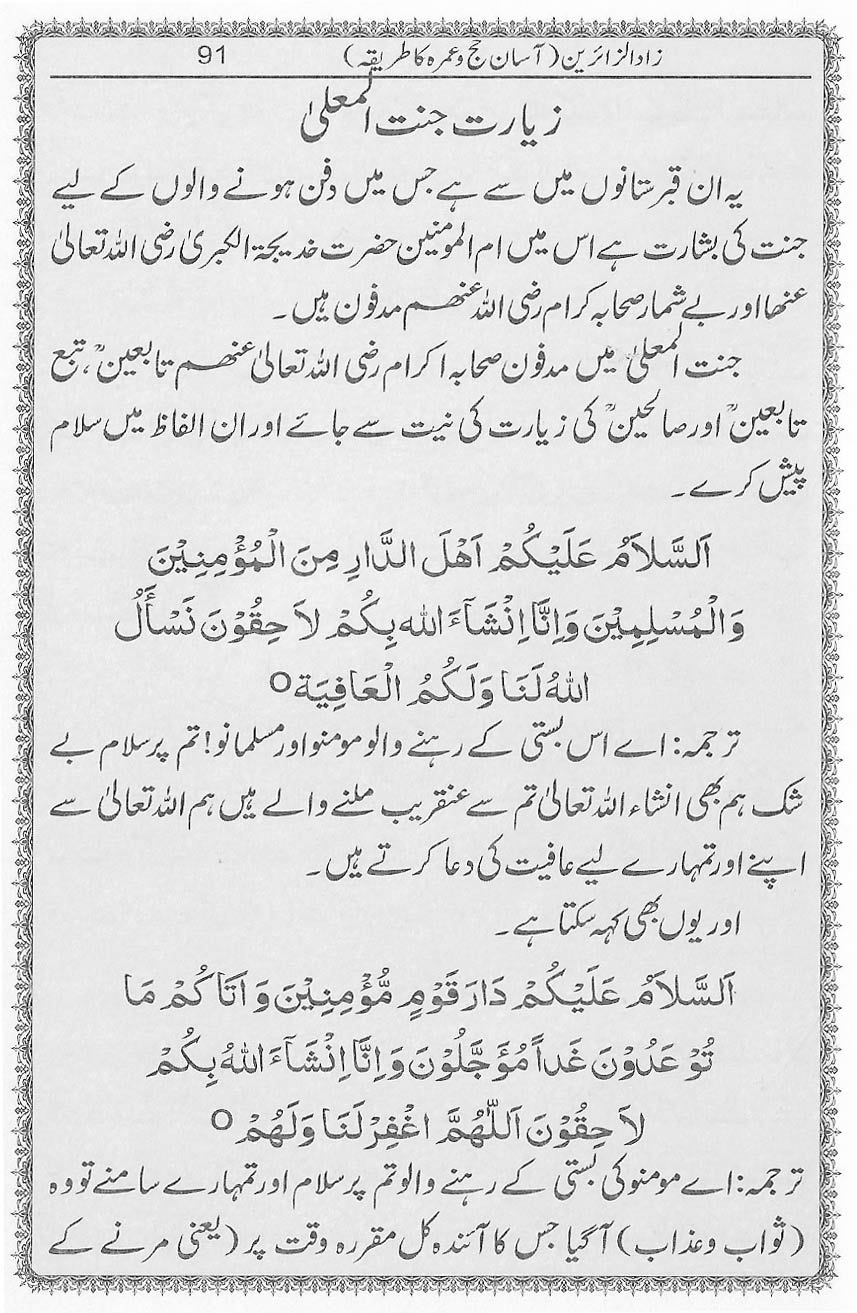 زاد الزائرین (آسان حج و عمرہ کا طریقہ) 91
زیارت جنت المعلیٰ
یہ ان قبرستانوں میں سے ہے جس میں دفن ہونے والوں کے لیے
جنت کی بشارت ہے اس میں ام المومنین حضرت خدیجۃ الکبریٰ رضی اللہ تعالیٰ
عنھا اور بے شمار صحابہ کرام رضی اللہ عنھم مدفون ہیں۔
جنت المعلیٰ میں مدفون صحابہ اکرام رضی اللہ تعالیٰ عنھم تابعینؒ، تبع
تابعینؒ اور صالحینؒ کی زیارت کی نیت سے جائے اور ان الفاظ میں سلام
پیش کرے۔
اَلسَّلَامُ عَلَیْکُمْ اَھْلَ الدَّارِ مِنَ الْمُؤْمِنِیْنَ
وَالْمُسْلِمِیْنَ وَاِنَّا اِنْشَآءَ اللہ بِکُمْ لَا حِقُوْنَ نَسْأَلُ
اللہُ لَنَا وَلَکُمُ الْعَافِیَة o
ترجمہ: اے اس بستی کے رہنے والو مومنو اور مسلمانو! تم پر سلام بے
شک ہم بھی انشاء اللہ تعالیٰ تم سے عنقریب ملنے والے ہیں ہم اللہ تعالیٰ سے
اپنے اور تمہارے لیے عافیت کی دعا کرتے ہیں۔
اور یوں بھی کہہ سکتا ہے۔
اَلسَّلَامُ عَلَیْکُمْ دَارَ قَوْمٍ مُّؤْمِنِیْنَ وَاَتَاکُمْ مَا
تُوْعَدُوْنَ غَداً مُؤَجَّلُوْنَ وَاِنَّا اِنْشَآءَ اللہُ بِکُمْ
لَا حِقُوْنَ اَللّٰھُمَّ اغْفِرْلَنَا وَلَھُمْ o
ترجمہ: اے مومنو کی بستی کے رہنے والو تم پر سلام اور تمہارے سامنے تو وہ
(ثواب و عذاب) آ گیا جس کا آئندہ کل مقررہ وقت پر (یعنی مرنے کے